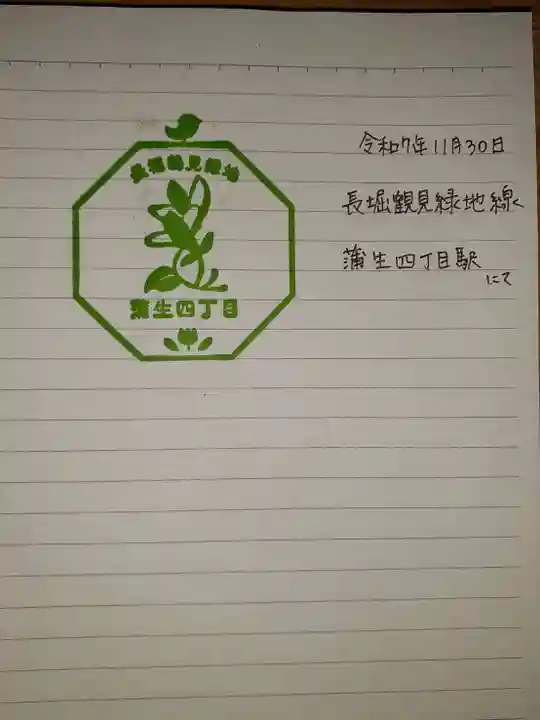 長堀鶴見緑地
蒲生四丁目
令和7年11月30日
長堀観見緑地線
蒲生四丁目駅
にて